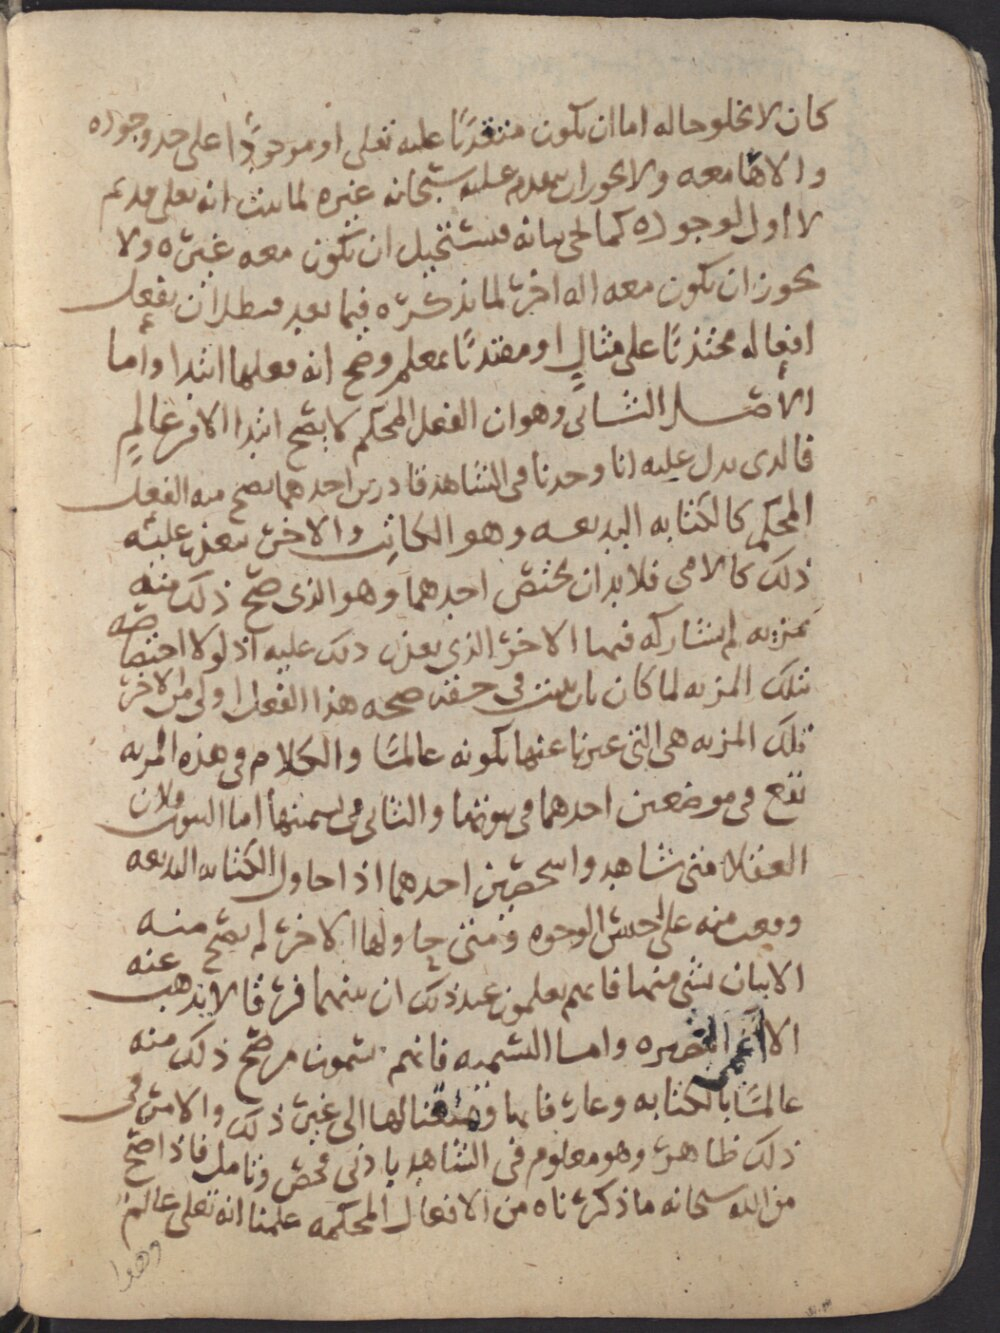 كان لا يخلو حاله اما ان يكون متقدمًا عليه تعلى او موجودًا على حد وجوده
والاهًا معه ولا يجوز ان يتقدم عليه سبحانه غيره لما بينا انه تعلى قديم
لا اول لوجوده كما لحي بيانه فيستحيل ان يكون معه غيره ولا
يجوز ان يكون معه اله اخر لما نذكره فيما بعد فبطل ان يفعل
افعاله محتذيًا على مثالٍ او مقتديًا بمعلم وضح انه فعلها ابتدا واما
الأصل الثاني وهو ان الفعل المحكم لا يصح ابتدا الا من عالم
فالذي يدل عليه انا وجدنا في الشاهد قادرين احدهما يصح منه الفعل
المحكم كالكتابه البديعه وهو الكاتب والاخر يتعذر عليه
ذلك كالامي فلا بد ان يختص احدهما وهو الذي صح ذلك منه
بمزيه لم يشاركه فيها الاخر الذي تعذر ذلك عليه اذ لولا اختصاصه
بتلك المزيه لما كان بان يثبت في حقه صحه هذا الفعل اولى من الاخر
تلك المزيه هي التي عبرنا عنها بكونه عالمًا والكلام في هذه المزيه
يقع في موضعين احدهما في ثبوتها والثاني في تسميتها اما الثبوت فلان
العقلا متى شاهدوا شخصين احدهما اذا حاول الكتابه البديعه
وقعت منه على احسن الوجوه ومتى حاولها الاخر لم يصح منه
الاتيان بشي منها فانهم يعلمون عند ذلك ان بينهما فرقًا لا يذهب عنه
الا اعمى البصيره واما التسميه فانهم يسمون من صح ذلك منه
عالمًا بالكتابه وعارفا بها ومتقنا لها الى غير ذلك والامر في
ذلك ظاهر وهو معلوم في الشاهد بادنى فحص وتامل فاذا صح
من الله سبحانه ما ذكرناه من الافعال المحكمه علمنا انه تعلى عالم
وهذا